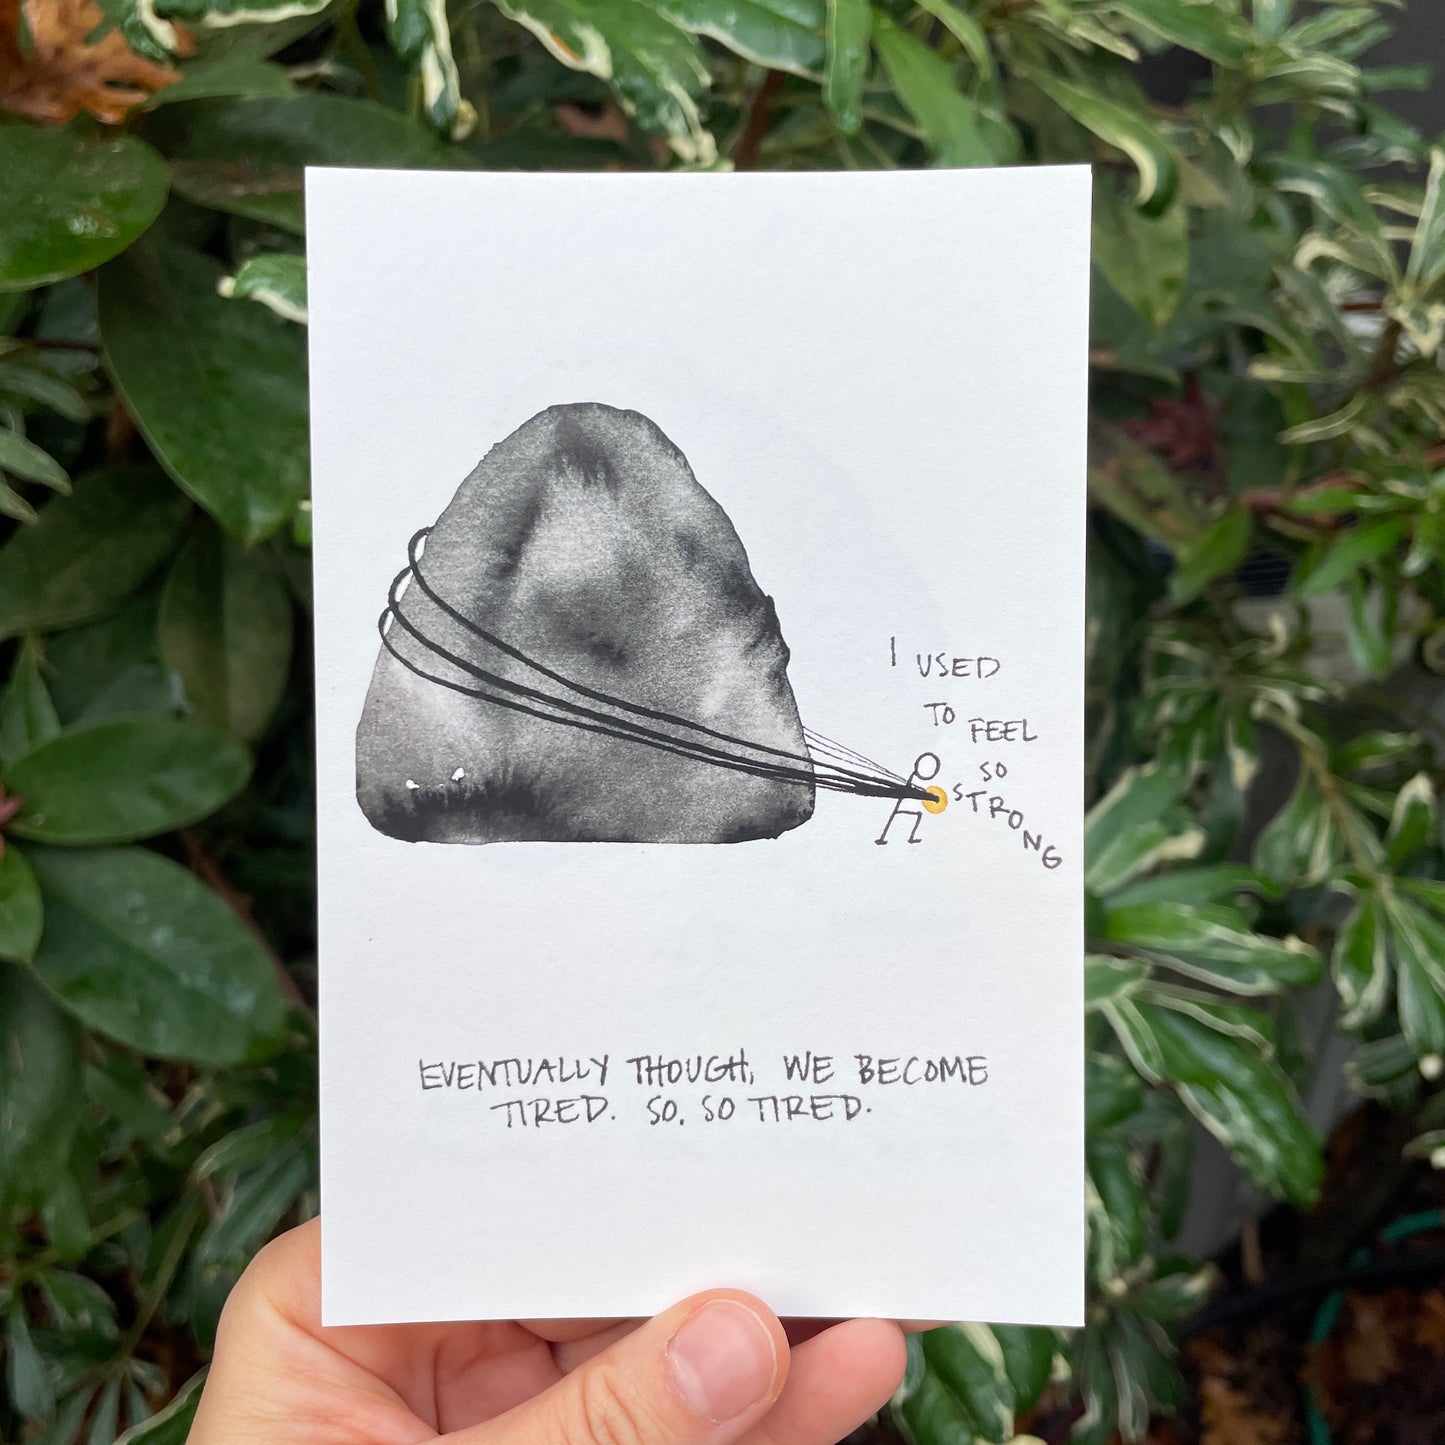 I USED
TO FEEL
SO
STRONG
EVENTUALLY THOUGH, WE BECOME
TIRED. SO, SO TIRED.